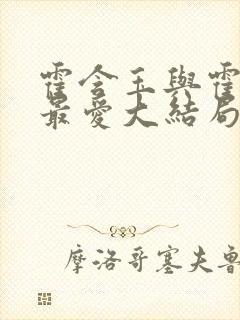 霍令王與霍
最愛大結局
摩洛哥塞夫魯